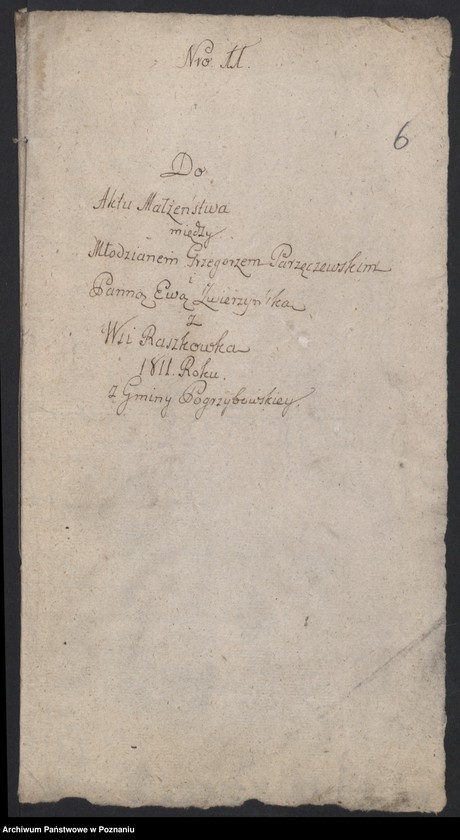 Nro 11.
6
Do
Aktu Małżeństwa
między
Młodzianem Grzegorzem Parzęczewskim
i
Panną Ewą Zwierzyńską
z
Wsi Raszkowka
1811. Roku.
z Gminy Pogrzybowskiey.
Archiwum Państwowe w Poznaniu